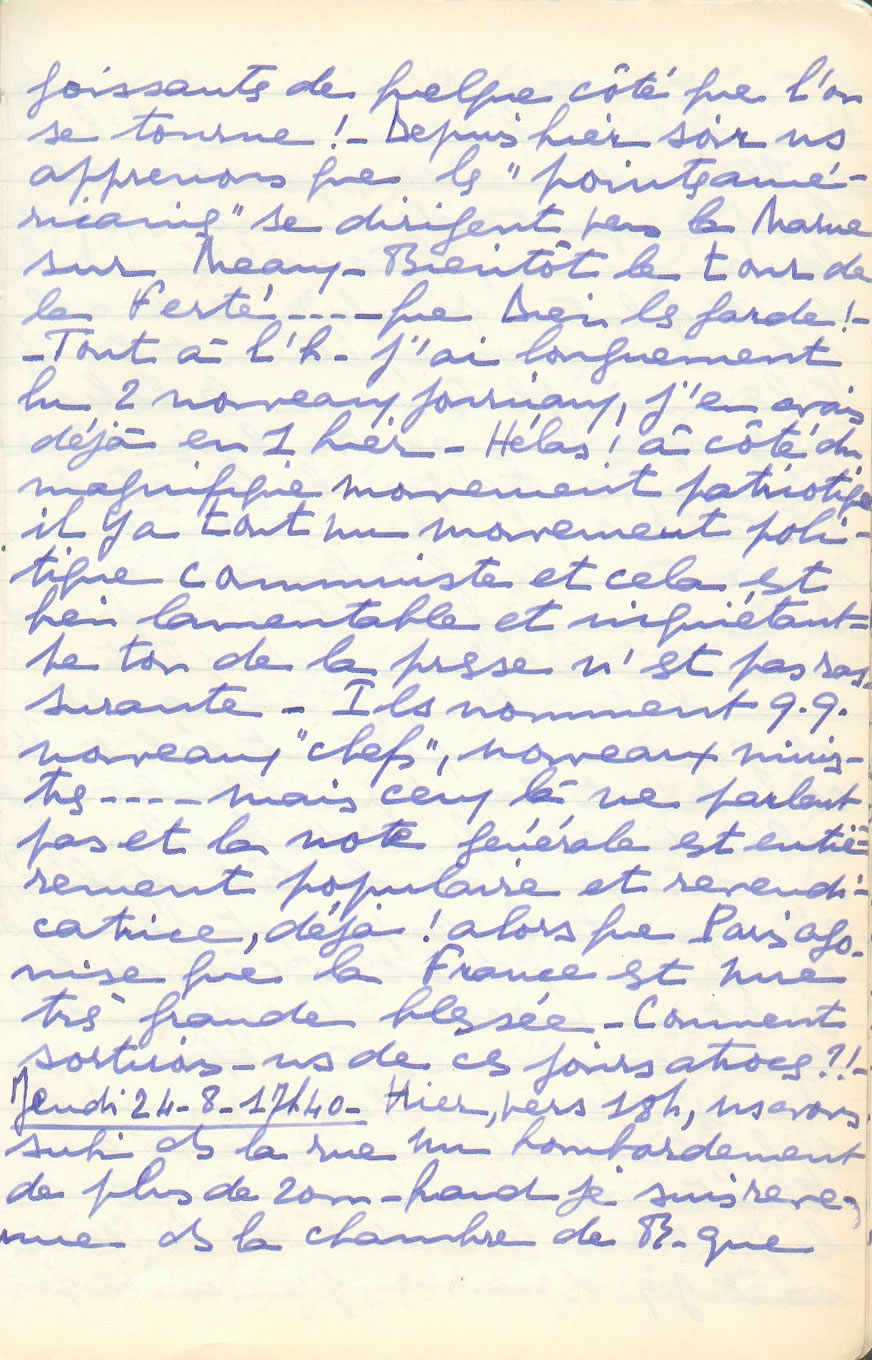 goissants de quelque côté que l'on
se tourne ! - Depuis hier soir ns
apprenons que les "pointes amé-
ricaines" se dirigent vers la Marne
sur Meaux - Bientôt le tour de
la Ferté ---- que Dieu les garde ! -
- Tout à l'h - j'ai longuement
lu 2 nouveaux journaux, j'en avais
déjà eu 1 hier - Hélas ! à côté du
magnifique mouvement patriotique
il y a tout un mouvement poli-
tique communiste et cela est
bien lamentable et inquiétant =
Le ton de la presse n'est pas ras-
surante - Ils nomment q.q.
nouveaux "chefs", nouveaux minis-
tres ---- mais ceux là ne parlent
pas et la note générale est entiè-
rement populaire et revendi-
catrice, déjà ! alors que Paris ago-
nise que la France est une
très grande blessée - Comment
sortirons-ns de ces jours atroces ?! -
Jeudi 24-8-17h40 - Hier, vers 18h, ns avons
subi ds la rue un bombardement
de plus de 20m - quand je suis reve-
nue ds la chambre de B. que